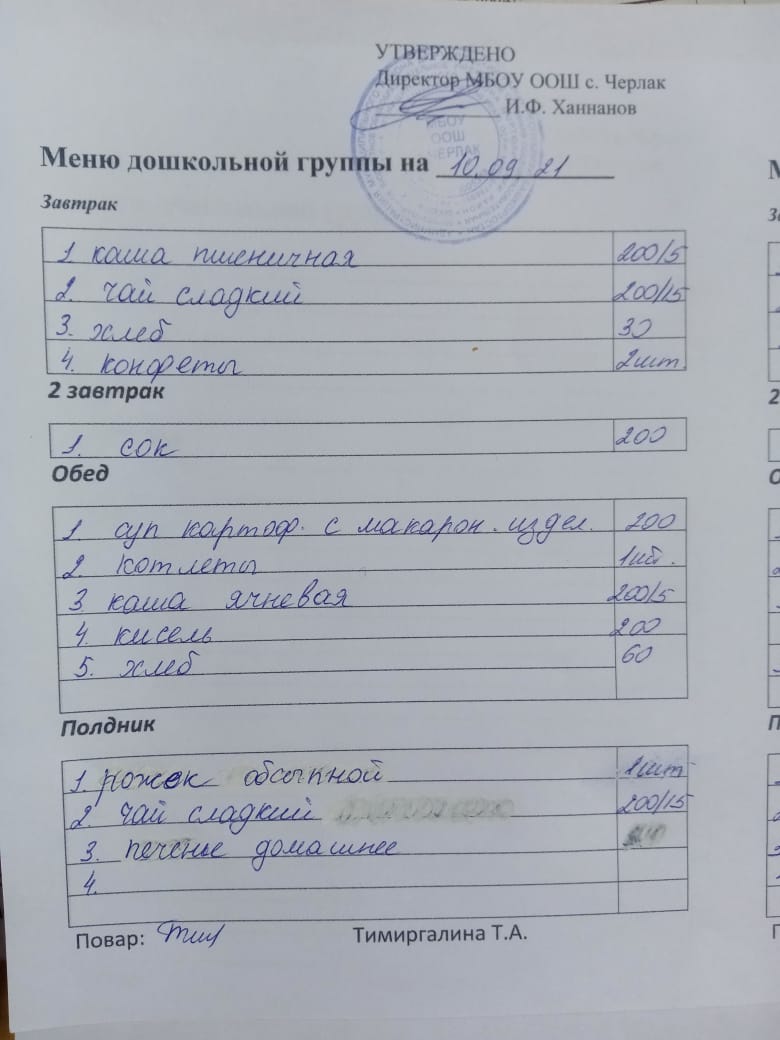 УТВЕРЖДЕНО
Директор МБОУ ООШ с. Черлак
И.Ф. Ханнанов
МБОУ
ООШ
ЧЕРЛАК
Меню дошкольной группы на 10.09.21
Завтрак
1 каша пшеничная 200/5
2. чай сладкий 200/15
3. хлеб 30
4. конфеты 2шт.
2 завтрак
1. сок 200
Обед
1 суп картоф. с макарон. издел. 200
2. котлеты 1шт.
3 каша ячневая 200/5
4. кисель 200
5. хлеб 60
Полдник
1. рожок обсыпной 1шт
2. чай сладкий 200/15
3. печенье домашнее
4.
Повар: Тимиргалина Т.А.